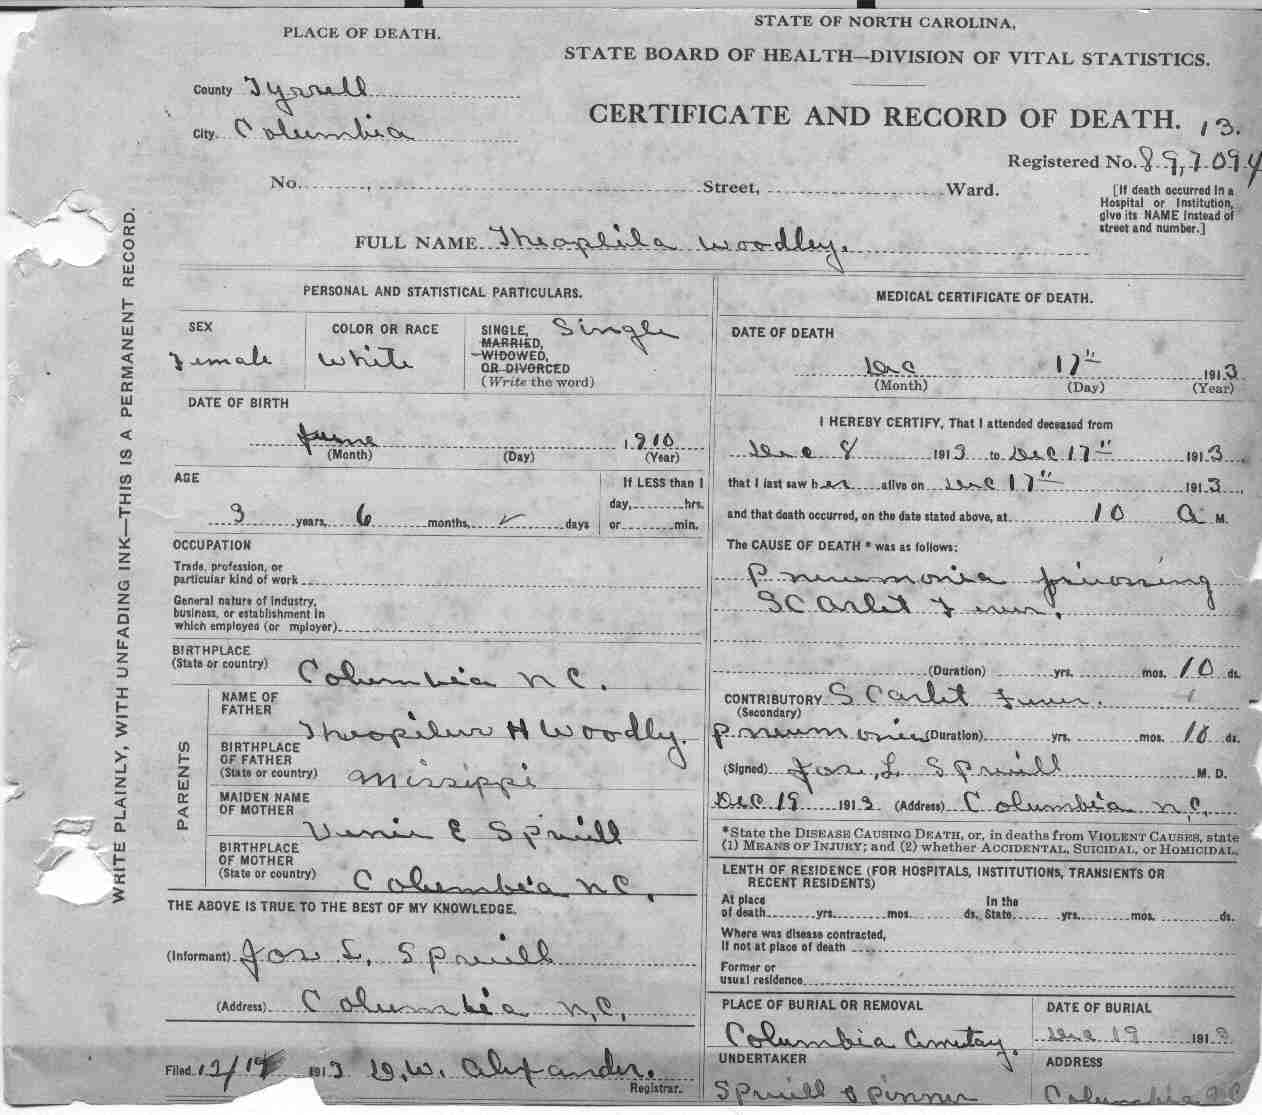 PLACE OF DEATH.
County Tyrrell
City. Columbia
STATE OF NORTH CAROLINA,
STATE BOARD OF HEALTH—DIVISION OF VITAL STATISTICS.
CERTIFICATE AND RECORD OF DEATH. 13.
Registered No. 897.094
No. Street, Ward.
[If death occurred in a
Hospital or Institution,
give its NAME instead of
street and number.]
FULL NAME Theophila Woodley.
WRITE PLAINLY, WITH UNFADING INK—THIS IS A PERMANENT RECORD.
PERSONAL AND STATISTICAL PARTICULARS.
SEX
Female
COLOR OR RACE
White
SINGLE, Single
MARRIED,
WIDOWED,
OR DIVORCED
(Write the word)
DATE OF BIRTH
June 1910
(Month) (Day) (Year)
AGE
3 years, 6 months, days
If LESS than 1
day, hrs.
or min.
OCCUPATION
Trade, profession, or
particular kind of work
General nature of industry,
business, or establishment in
which employed (or mployer)
BIRTHPLACE
(State or country) Columbia N C.
PARENTS
NAME OF
FATHER
Theopilus H Woodly.
BIRTHPLACE
OF FATHER
(State or country) Missippi
MAIDEN NAME
OF MOTHER
E Spruill
BIRTHPLACE
OF MOTHER
(State or country) Columbia N C.
THE ABOVE IS TRUE TO THE BEST OF MY KNOWLEDGE.
(Informant) Jos L. Spruill
(Address) Columbia N.C.
Filed 12/19 1913 W. Alexander.
Registrar.
MEDICAL CERTIFICATE OF DEATH.
DATE OF DEATH
Dec 17" 1913
(Month) (Day) (Year)
I HEREBY CERTIFY, That I attended deceased from
Dec 8 1913 to Dec 17" 1913,
that I last saw her alive on Dec 17" 1913,
and that death occurred, on the date stated above, at 10 a M.
The CAUSE OF DEATH * was as follows:
Pneumonia
Scarlet Fever.
(Duration) yrs. mos. 10 ds.
CONTRIBUTORY Scarlet Fever.
(Secondary)
Pneumonia (Duration) yrs. mos. 10 ds.
(Signed) Jos. L Spruill M. D.
Dec 19 1913 (Address) Columbia N.C.
*State the DISEASE CAUSING DEATH, or, in deaths from VIOLENT CAUSES, state
(1) MEANS OF INJURY; and (2) whether ACCIDENTAL, SUICIDAL, or HOMICIDAL.
LENTH OF RESIDENCE (FOR HOSPITALS, INSTITUTIONS, TRANSIENTS OR
RECENT RESIDENTS)
At place
of death yrs. mos. ds.
In the
State yrs. mos. ds.
Where was disease contracted,
If not at place of death
Former or
usual residence
PLACE OF BURIAL OR REMOVAL
Columbia
DATE OF BURIAL
Dec 19 1913
UNDERTAKER
Spruill & Pinner
ADDRESS
Columbia